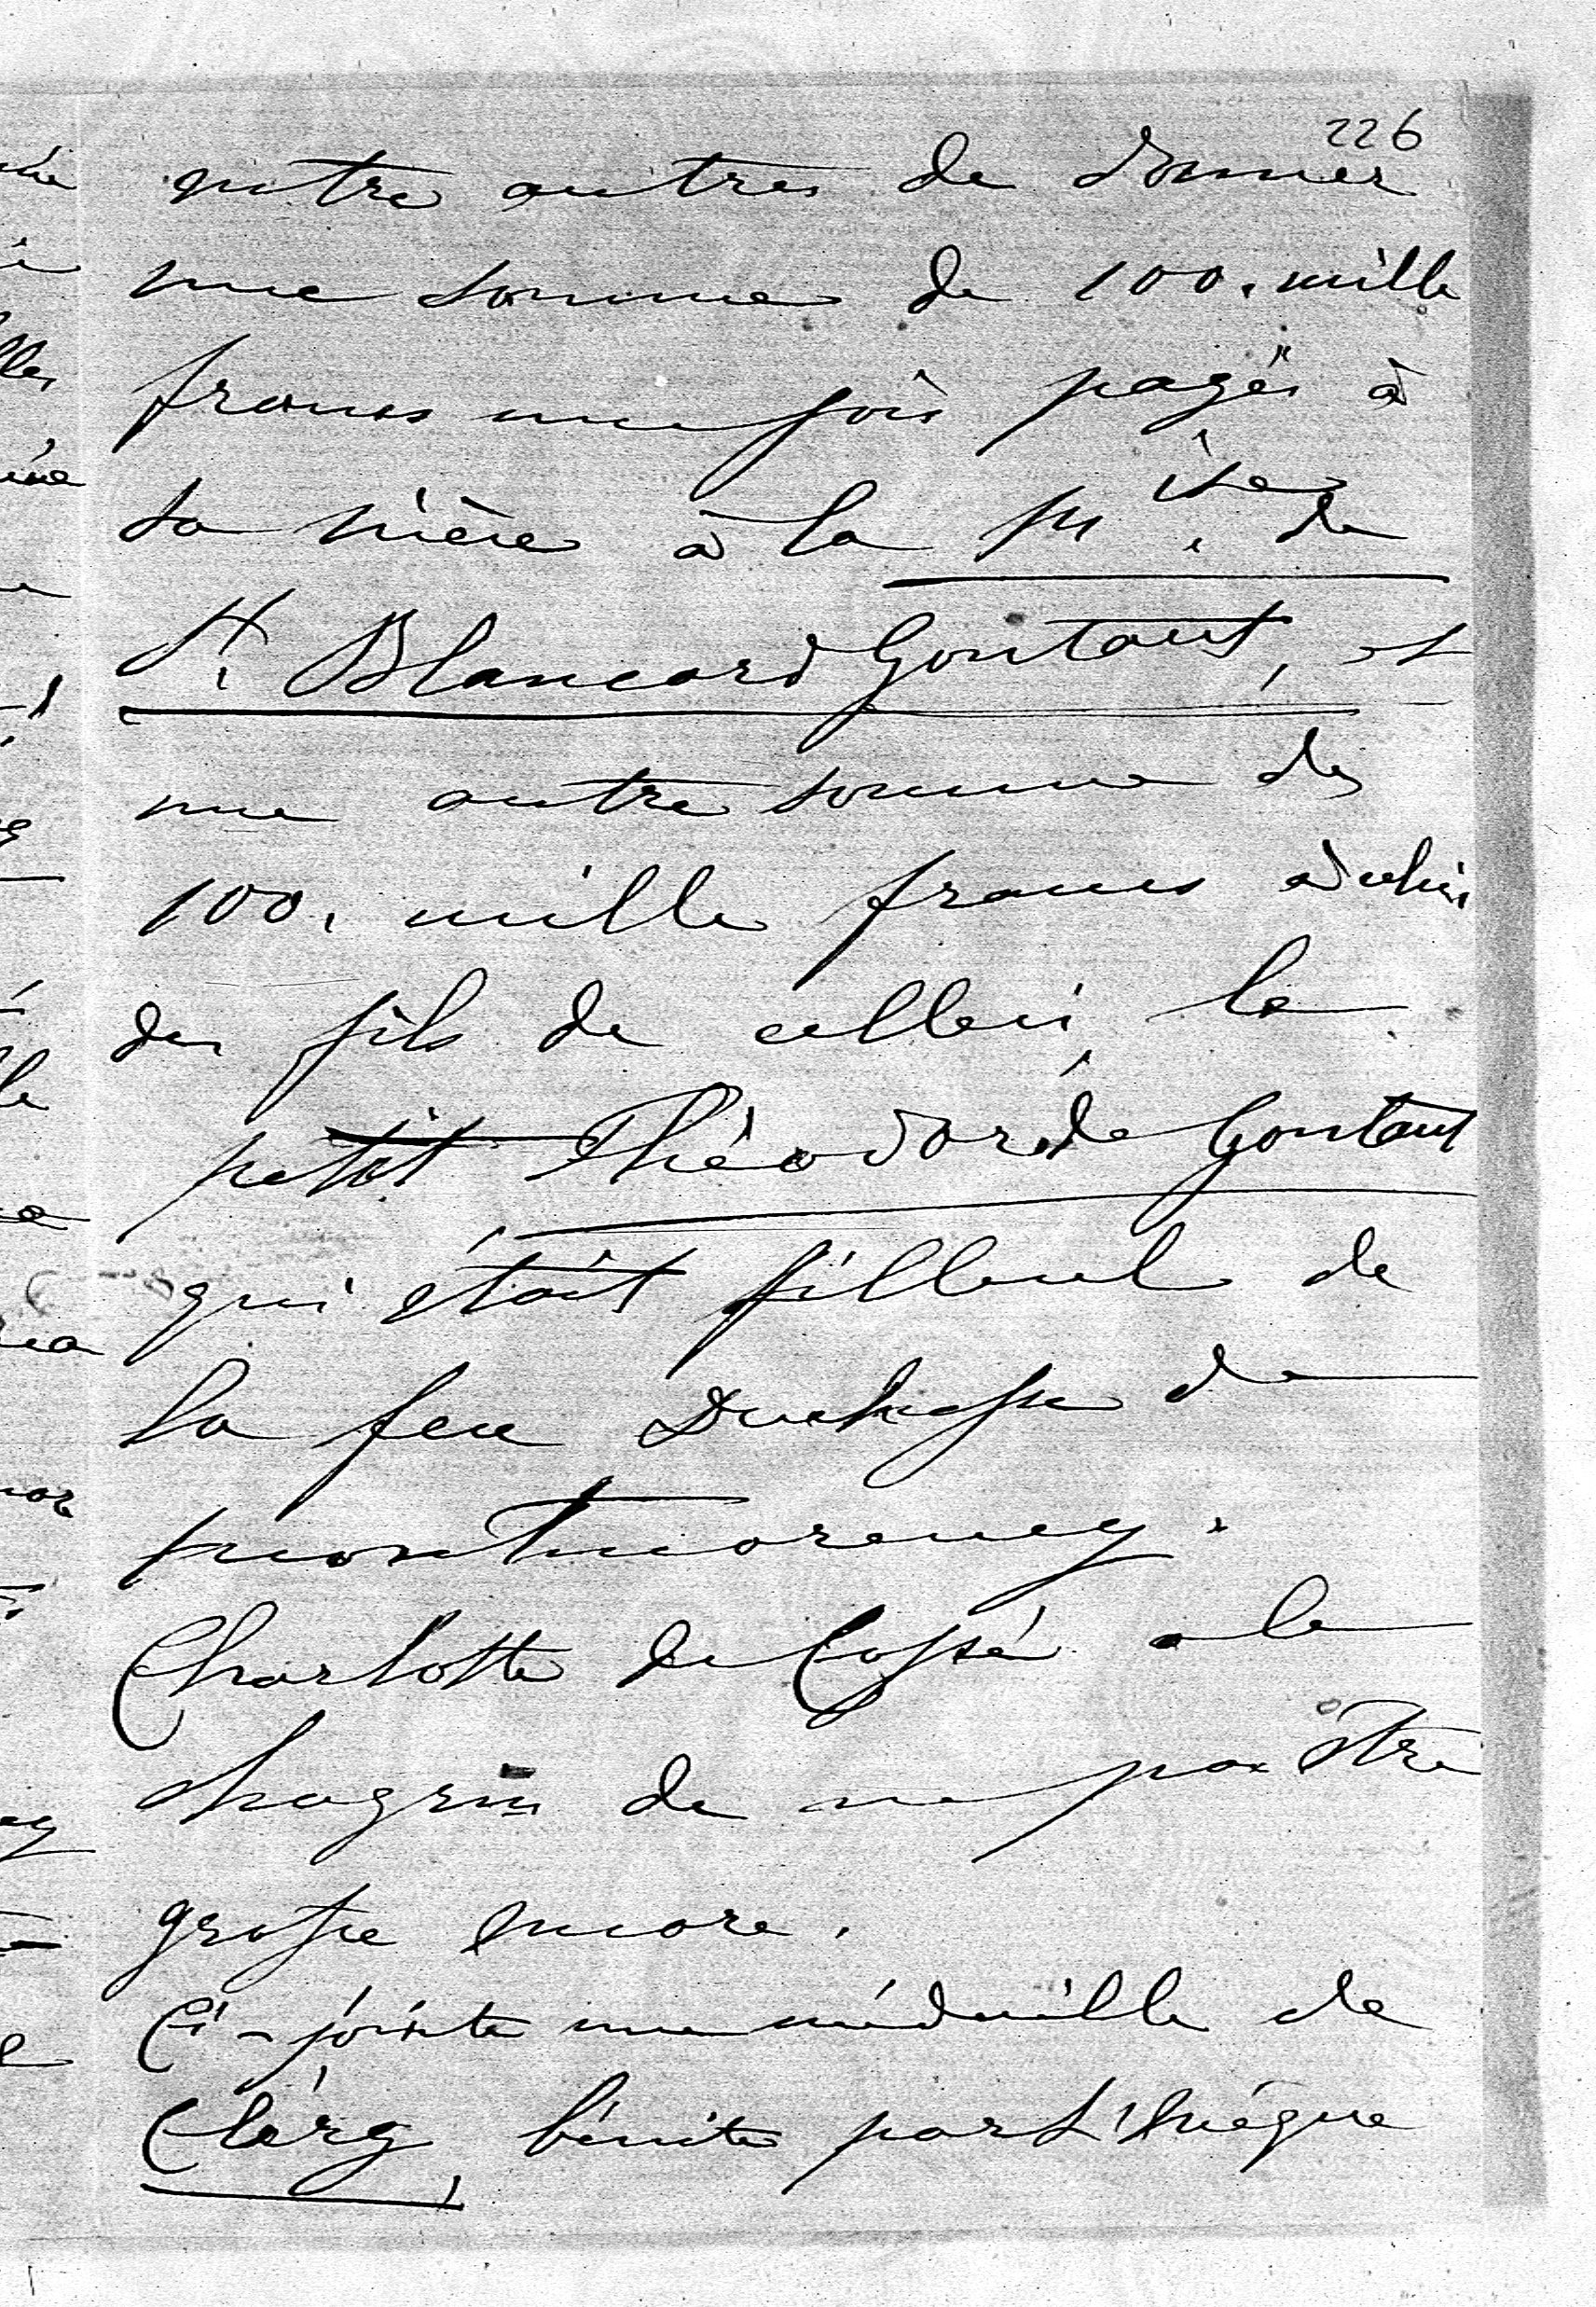 226
entre autres de donner
une somme de 100. mille
francs une fois payés à
sa nièce à la Mise. de
St. Blancard Gontaut, et
une autre somme de
100. mille francs à celui
des fils de celleci, le
petit Théodore de Gontaut
qui était filleul de
la feue Duchesse de
Montmorency.
Charlotte de Cossé a le
chagrin de ne pas être
grosse encore.
Ci-jointe une médaille de
Cléry, bénite par L'Evêque